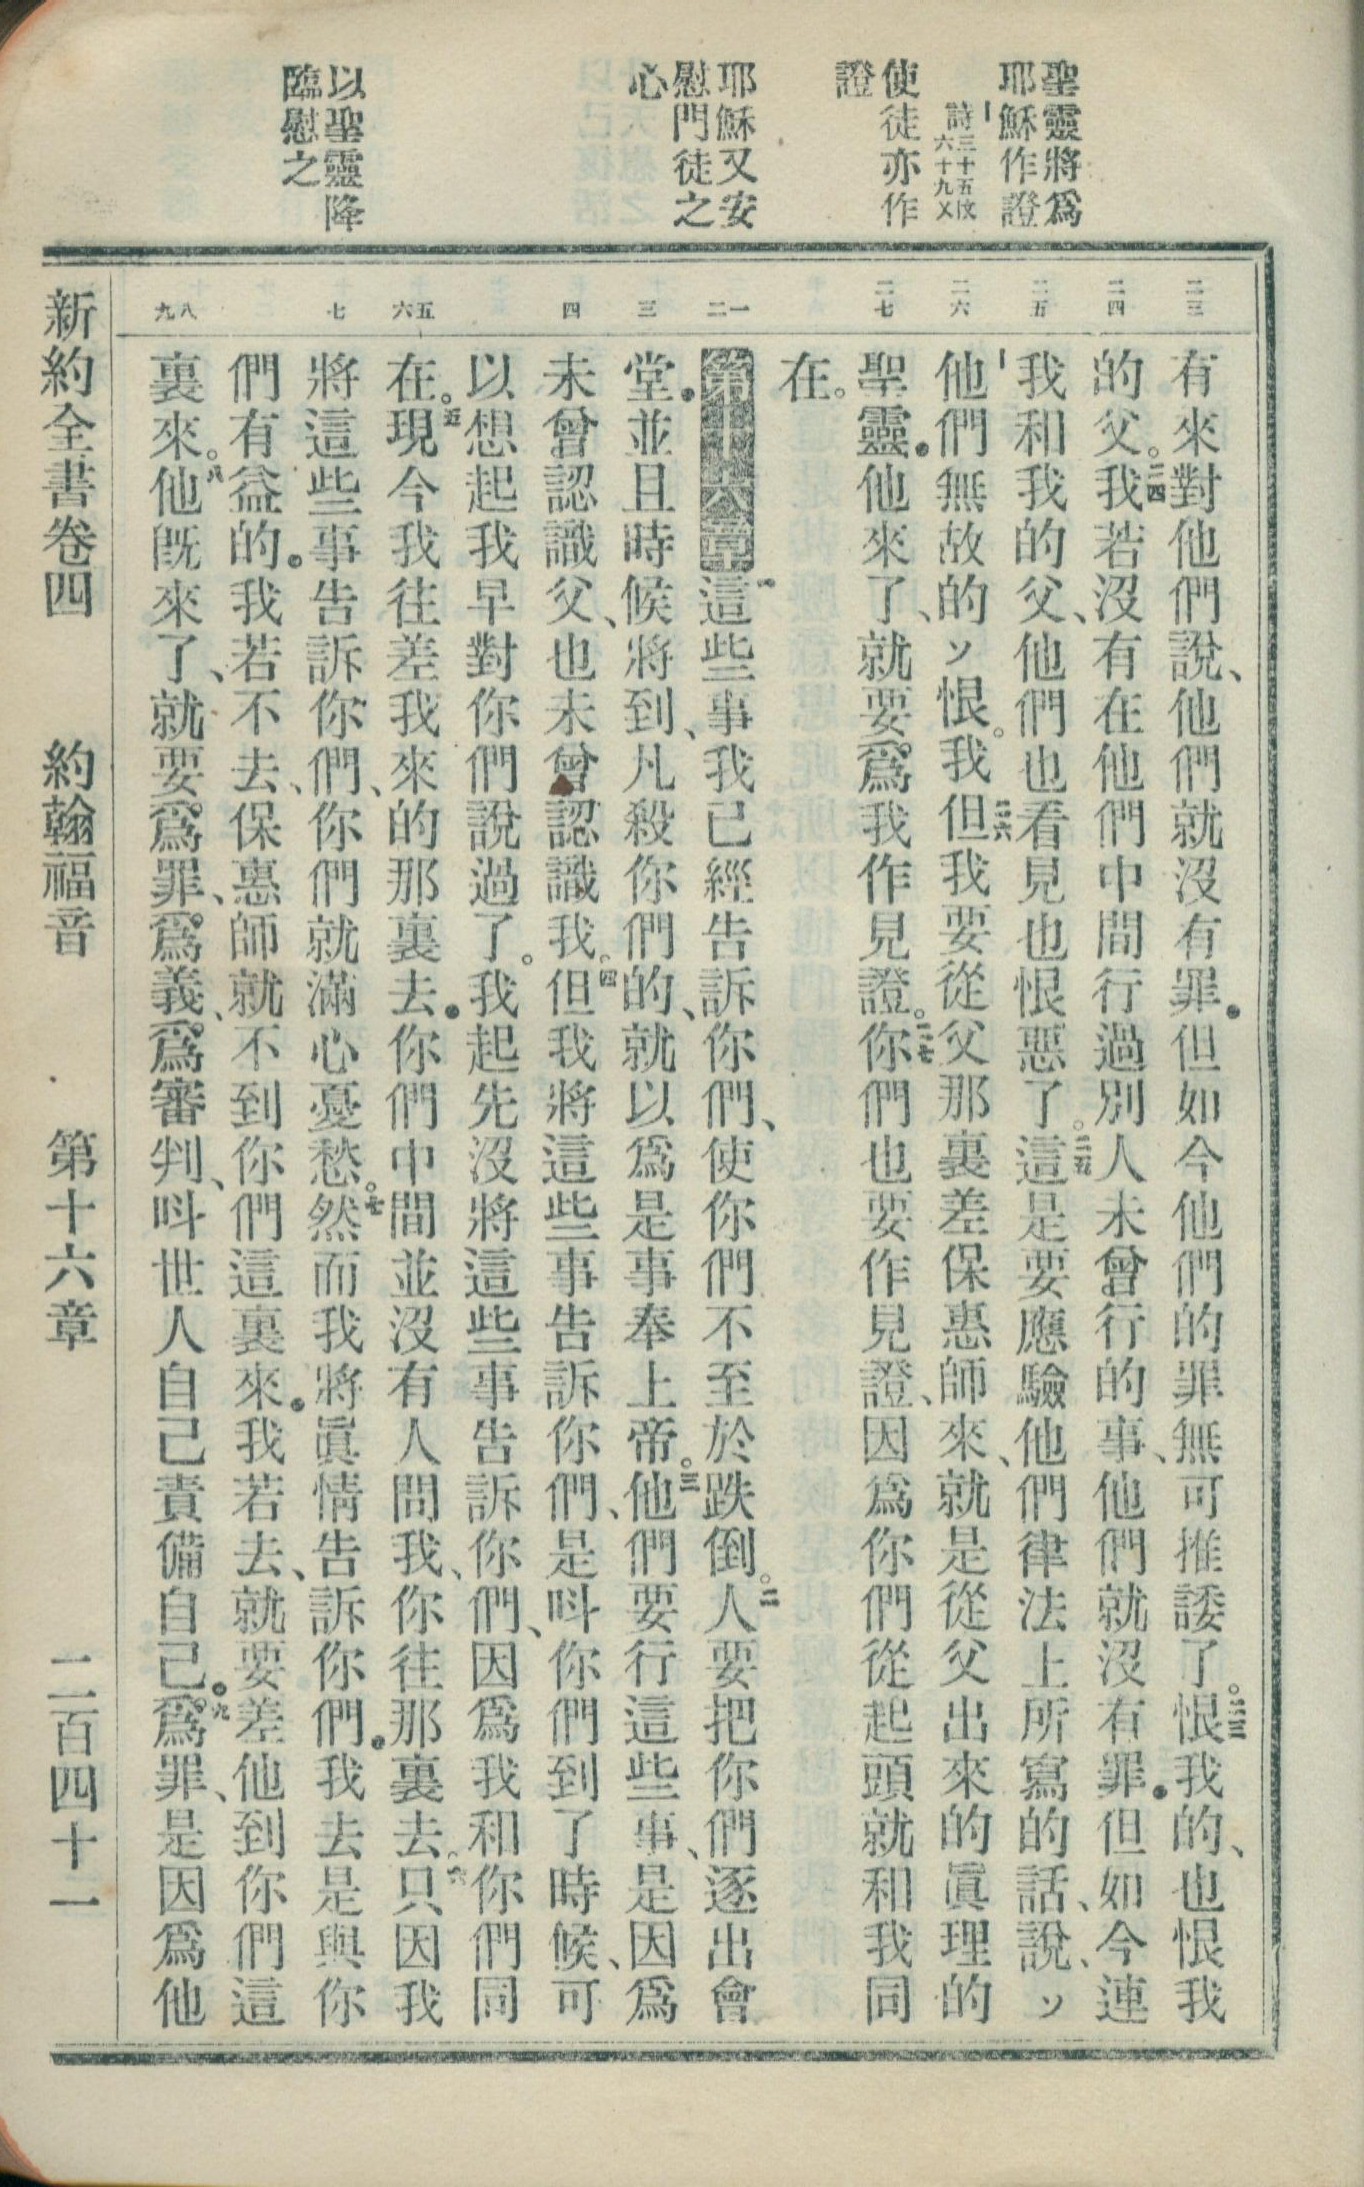 聖靈將爲
耶穌作證
詩三十五
六十九
使徒亦作
證
耶穌又安
慰門徒之
心
以聖靈降
臨慰之
二三
二四
二五
二六
二七
一二
三
四
五六
七
八九
有來對他們說、他們就沒有罪。但如今他們的罪無可推諉了。二三恨我的、也恨我
的父。二四我若沒有在他們中間行過別人未曾行的事、他們就沒有罪。但如今連
我和我的父、他們也看見也恨惡了。二五這是要應驗他們律法上所寫的話、說、
他們無故的恨我。二六但我要從父那裏差保惠師來、就是從父出來的眞理的
聖靈。他來了、就要爲我作見證。二七你們也要作見證、因爲你們從起頭就和我同
在。
第十六章 這些事我已經告訴你們、使你們不至於跌倒。二人要把你們逐出會
堂。並且時候將到、凡殺你們的、就以爲是事奉上帝。三他們要行這些事、是因爲
未曾認識父、也未曾認識我。四但我將這些事告訴你們、是呌你們到了時候、可
以想起我早對你們說過了。我起先沒將這些事告訴你們、因爲我和你們同
在。五現今我往差我來的那裏去。你們中間並沒有人問我、你往那裏去。六只因我
將這些事告訴你們、你們就滿心憂愁。七然而我將眞情告訴你們。我去是與你
們有益的。我若不去、保惠師就不到你們這裏來。我若去、就要差他到你們這
裏來。八他旣來了、就要爲罪、爲義、爲審判、呌世人自己責備自己。九爲罪、是因爲他
新約全書卷四 約翰福音 第十六章 二百四十一